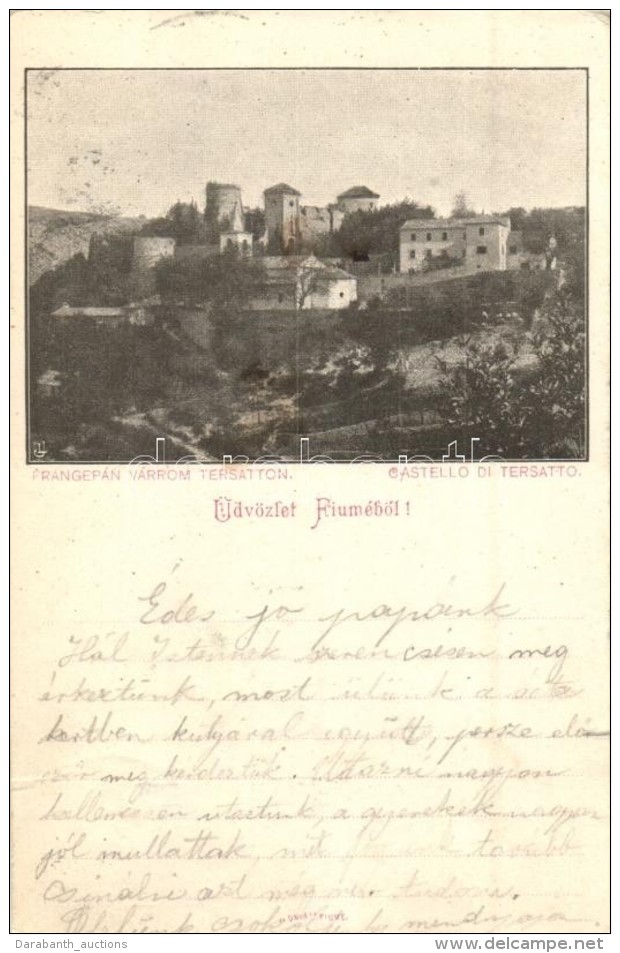 FRANGEPÁN VÁRROM TERSATTON. CASTELLO DI TERSATTO.
darabanth
Üdvözlet Fiuméból!
Édes jó papánk
Hál Istennek szerencsésen meg
érkeztünk, most ülünk a
kertben kutyával együtt, persze elő
ször meg kérdeztük. Utazni nagyon
kellemesen utaztunk, a gyerekek nagyon
jól mullattak, mit tovább
csinálni azt még nem tudom.
Ölelünk csókolunk
Darabanth_auctions www.delcampe.net